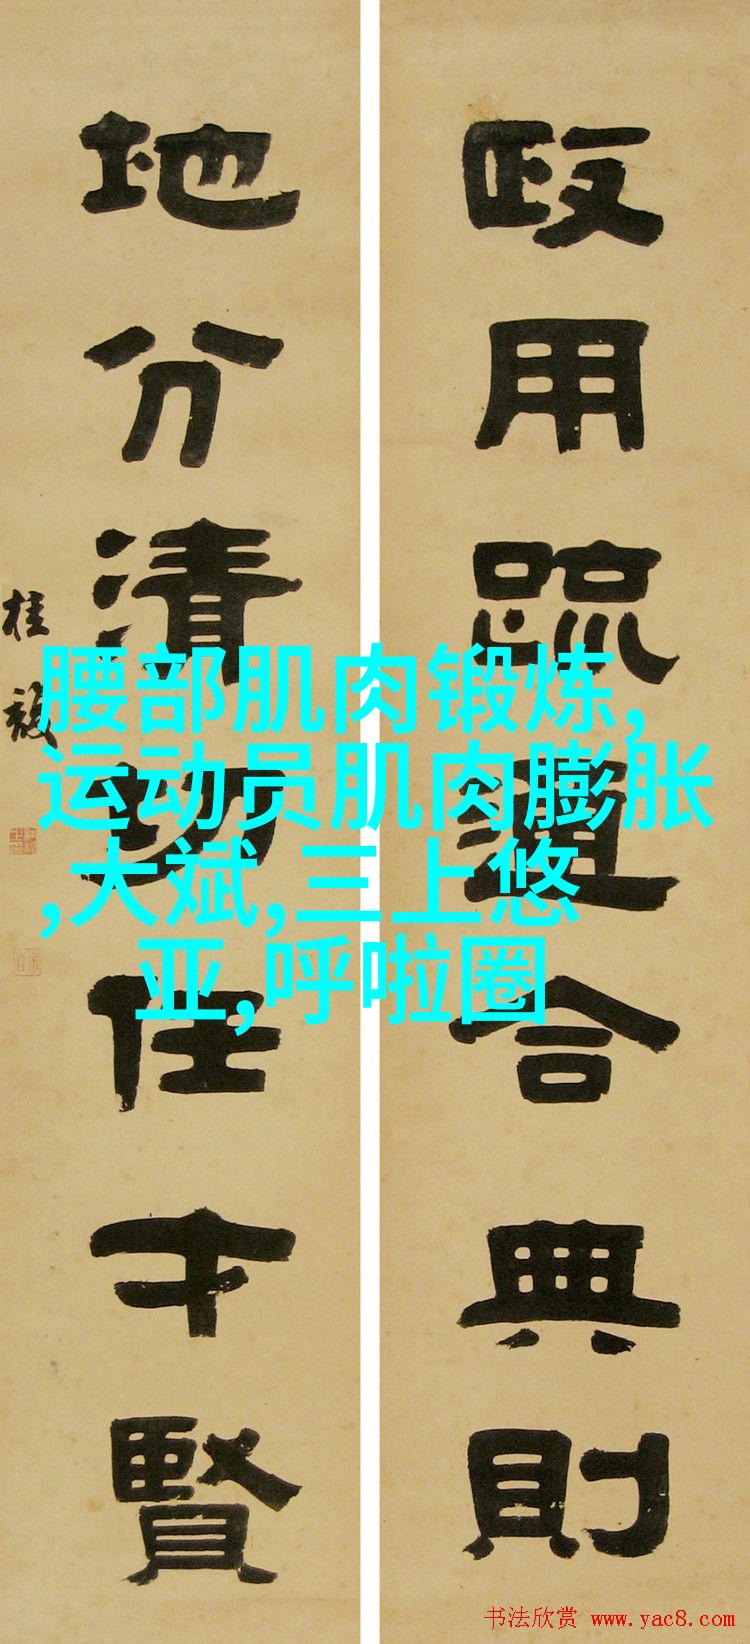 政用疏通合典則
地分清切任才賢
桂馥
腰部肌肉锻炼,
运动员肌肉膨胀
,大斌,三上悠
亚,呼啦圈
书法欣赏 www.yac8.com